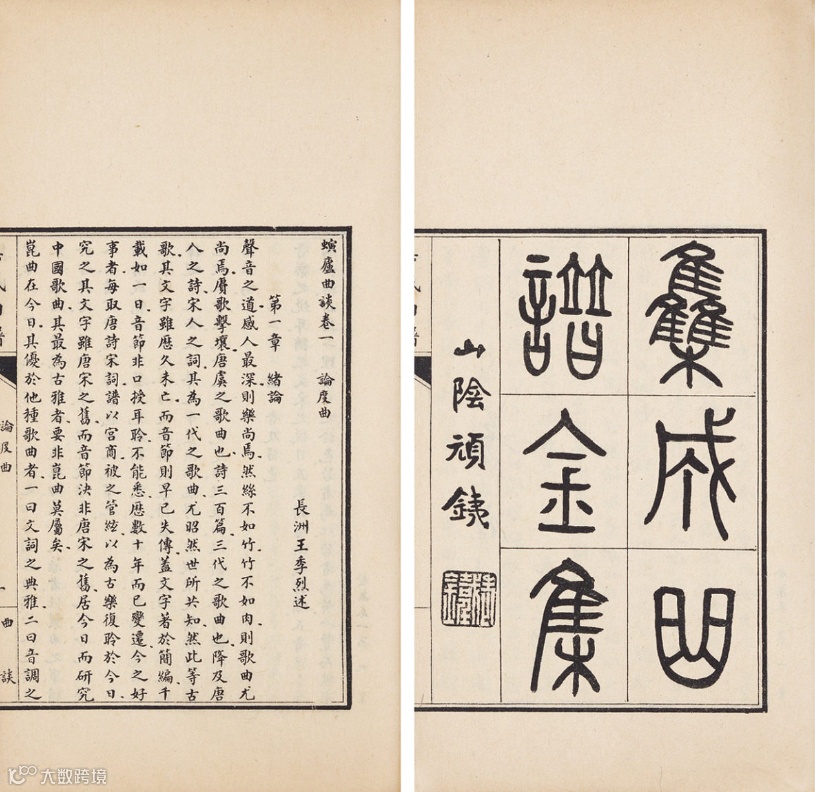 雧成曲
譜金集
山陰頑銕
螾廬曲談卷一　論度曲
長洲王季烈述
第一章　緒論
聲音之道感人最深則樂尚焉然絲不如竹竹不如肉則歌曲尤
尚焉賡歌擊壤唐虞之歌曲也詩三百篇三代之歌曲也降及唐
人之詩宋人之詞其為一代之歌曲尤昭然世所共知然此等古
歌其文字雖歷久未亡而音節則早已失傳蓋文字著於簡編千
載如一日音節非口授耳聆不能悉歷數十年而已變遷今之好
事者每取唐詩宋詞譜以宮商被之管絃以為古樂復聆於今日
究之其文字雖唐宋之舊而音節決非唐宋之舊居今日而研究
中國歌曲其最為古雅者要非崑曲莫屬矣
崑曲在今日其優於他種歌曲者一曰文詞之典雅二曰音調之
論度曲
一
曲談
大数跨境